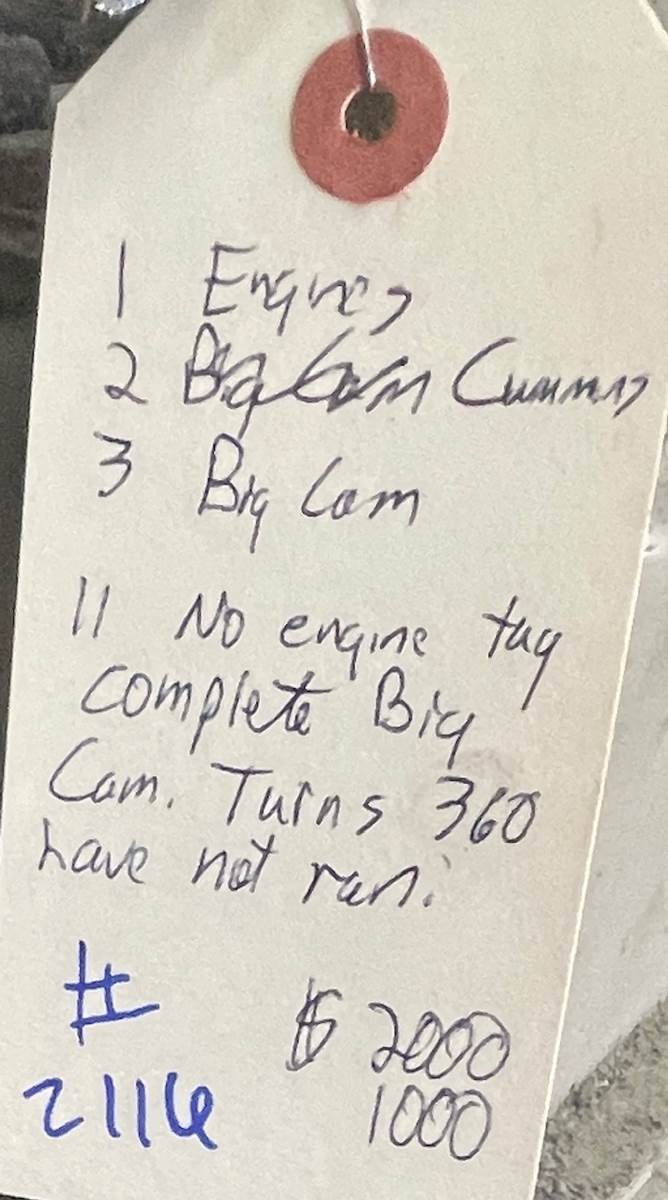 1 Engines
2 Cummins
3 Big Cam
11 No engine tag
complete Big
Cam. Turns 360
have not ran.
# $ 2000
2116 1000